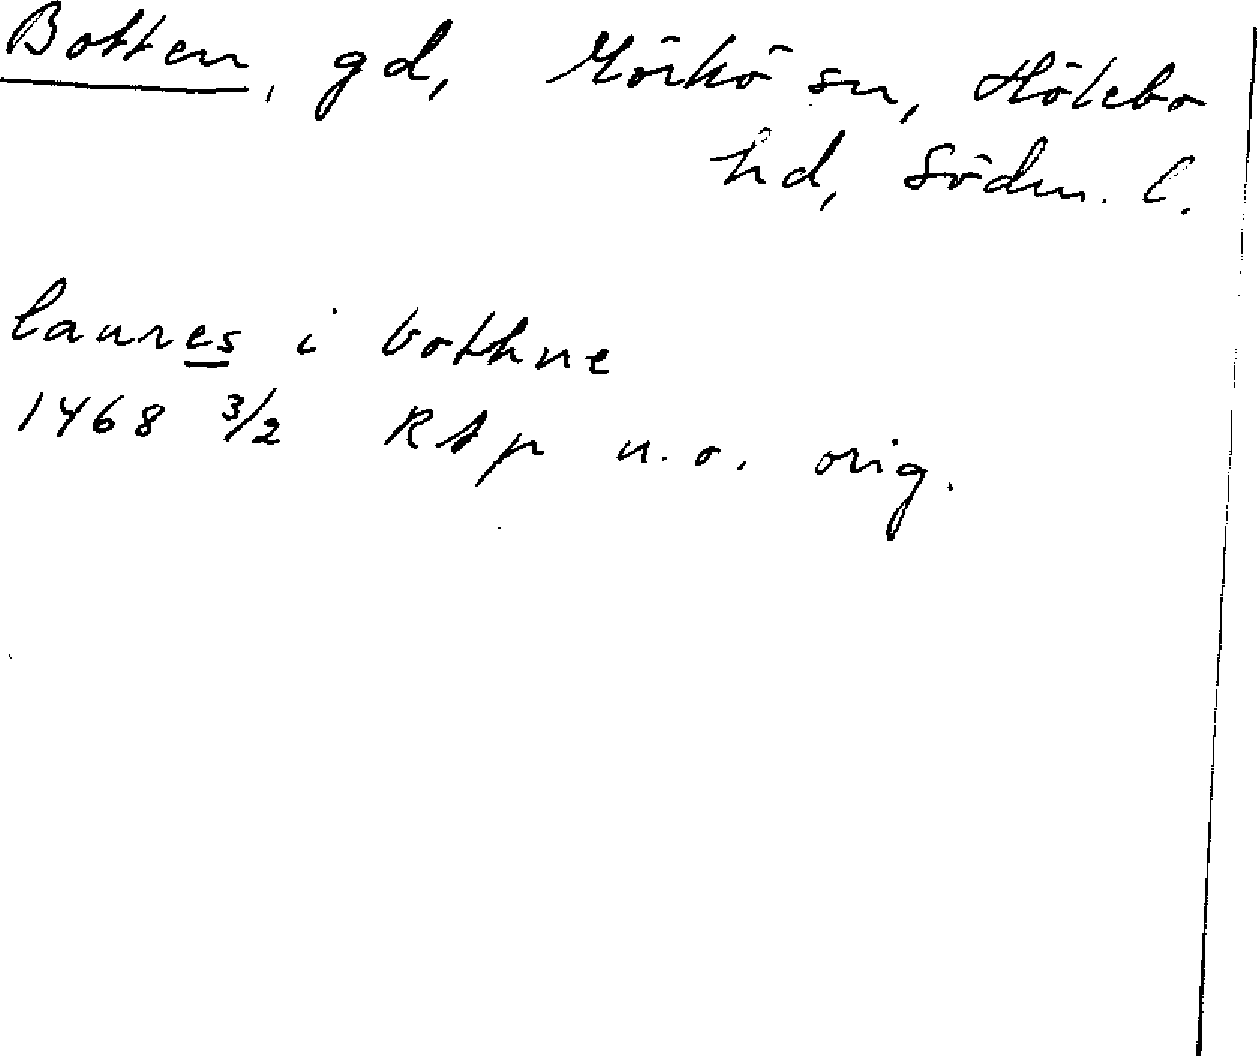 Botten, gd, Mörkö sn, Hölebo
hd, Södm. l.
laures i bothne
1468 3/2 RAp n.o. orig.